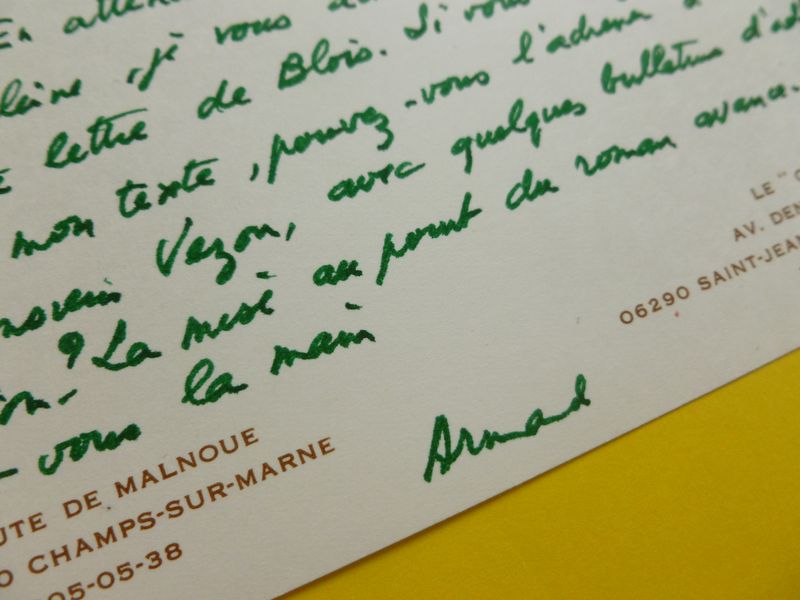 En atten
, je vous
lettre de Blois. Si vous
mon texte, pouvez-vous l'adresser à
Vezon, avec quelques bulletins d'ad
? La mise au point du roman avance.
vous la main
Armand
UTE DE MALNOUE
0 CHAMPS-SUR-MARNE
05-05-38
LE "C
AV. DEN
06290 SAINT-JEAN